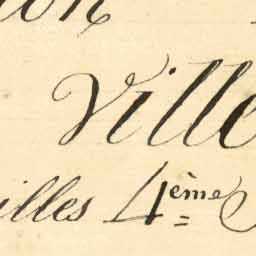 on
Ville
illes 4ème